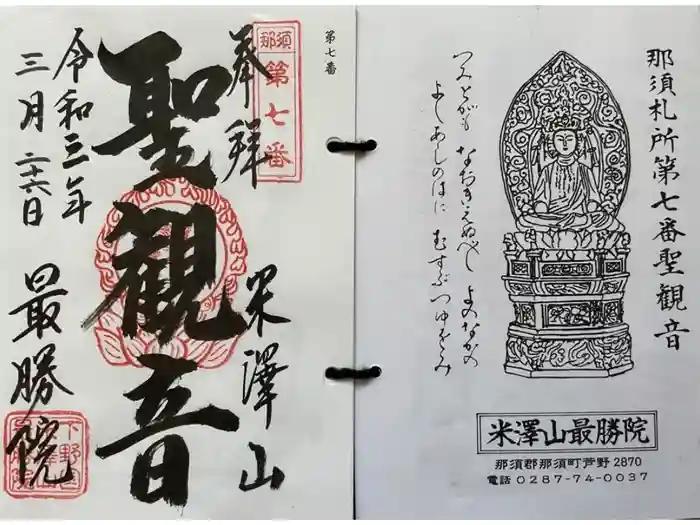 那須札所第七番聖観音
つみとがも なおきえぬべし よのなかの
よしあしのはに むすぶつゆをみ
米澤山最勝院
那須郡那須町芦野2870
電話 0287-74-0037
第七番
那須
第七番
奉拝
米澤山
聖観音
令和三年
三月二十六日
最勝院